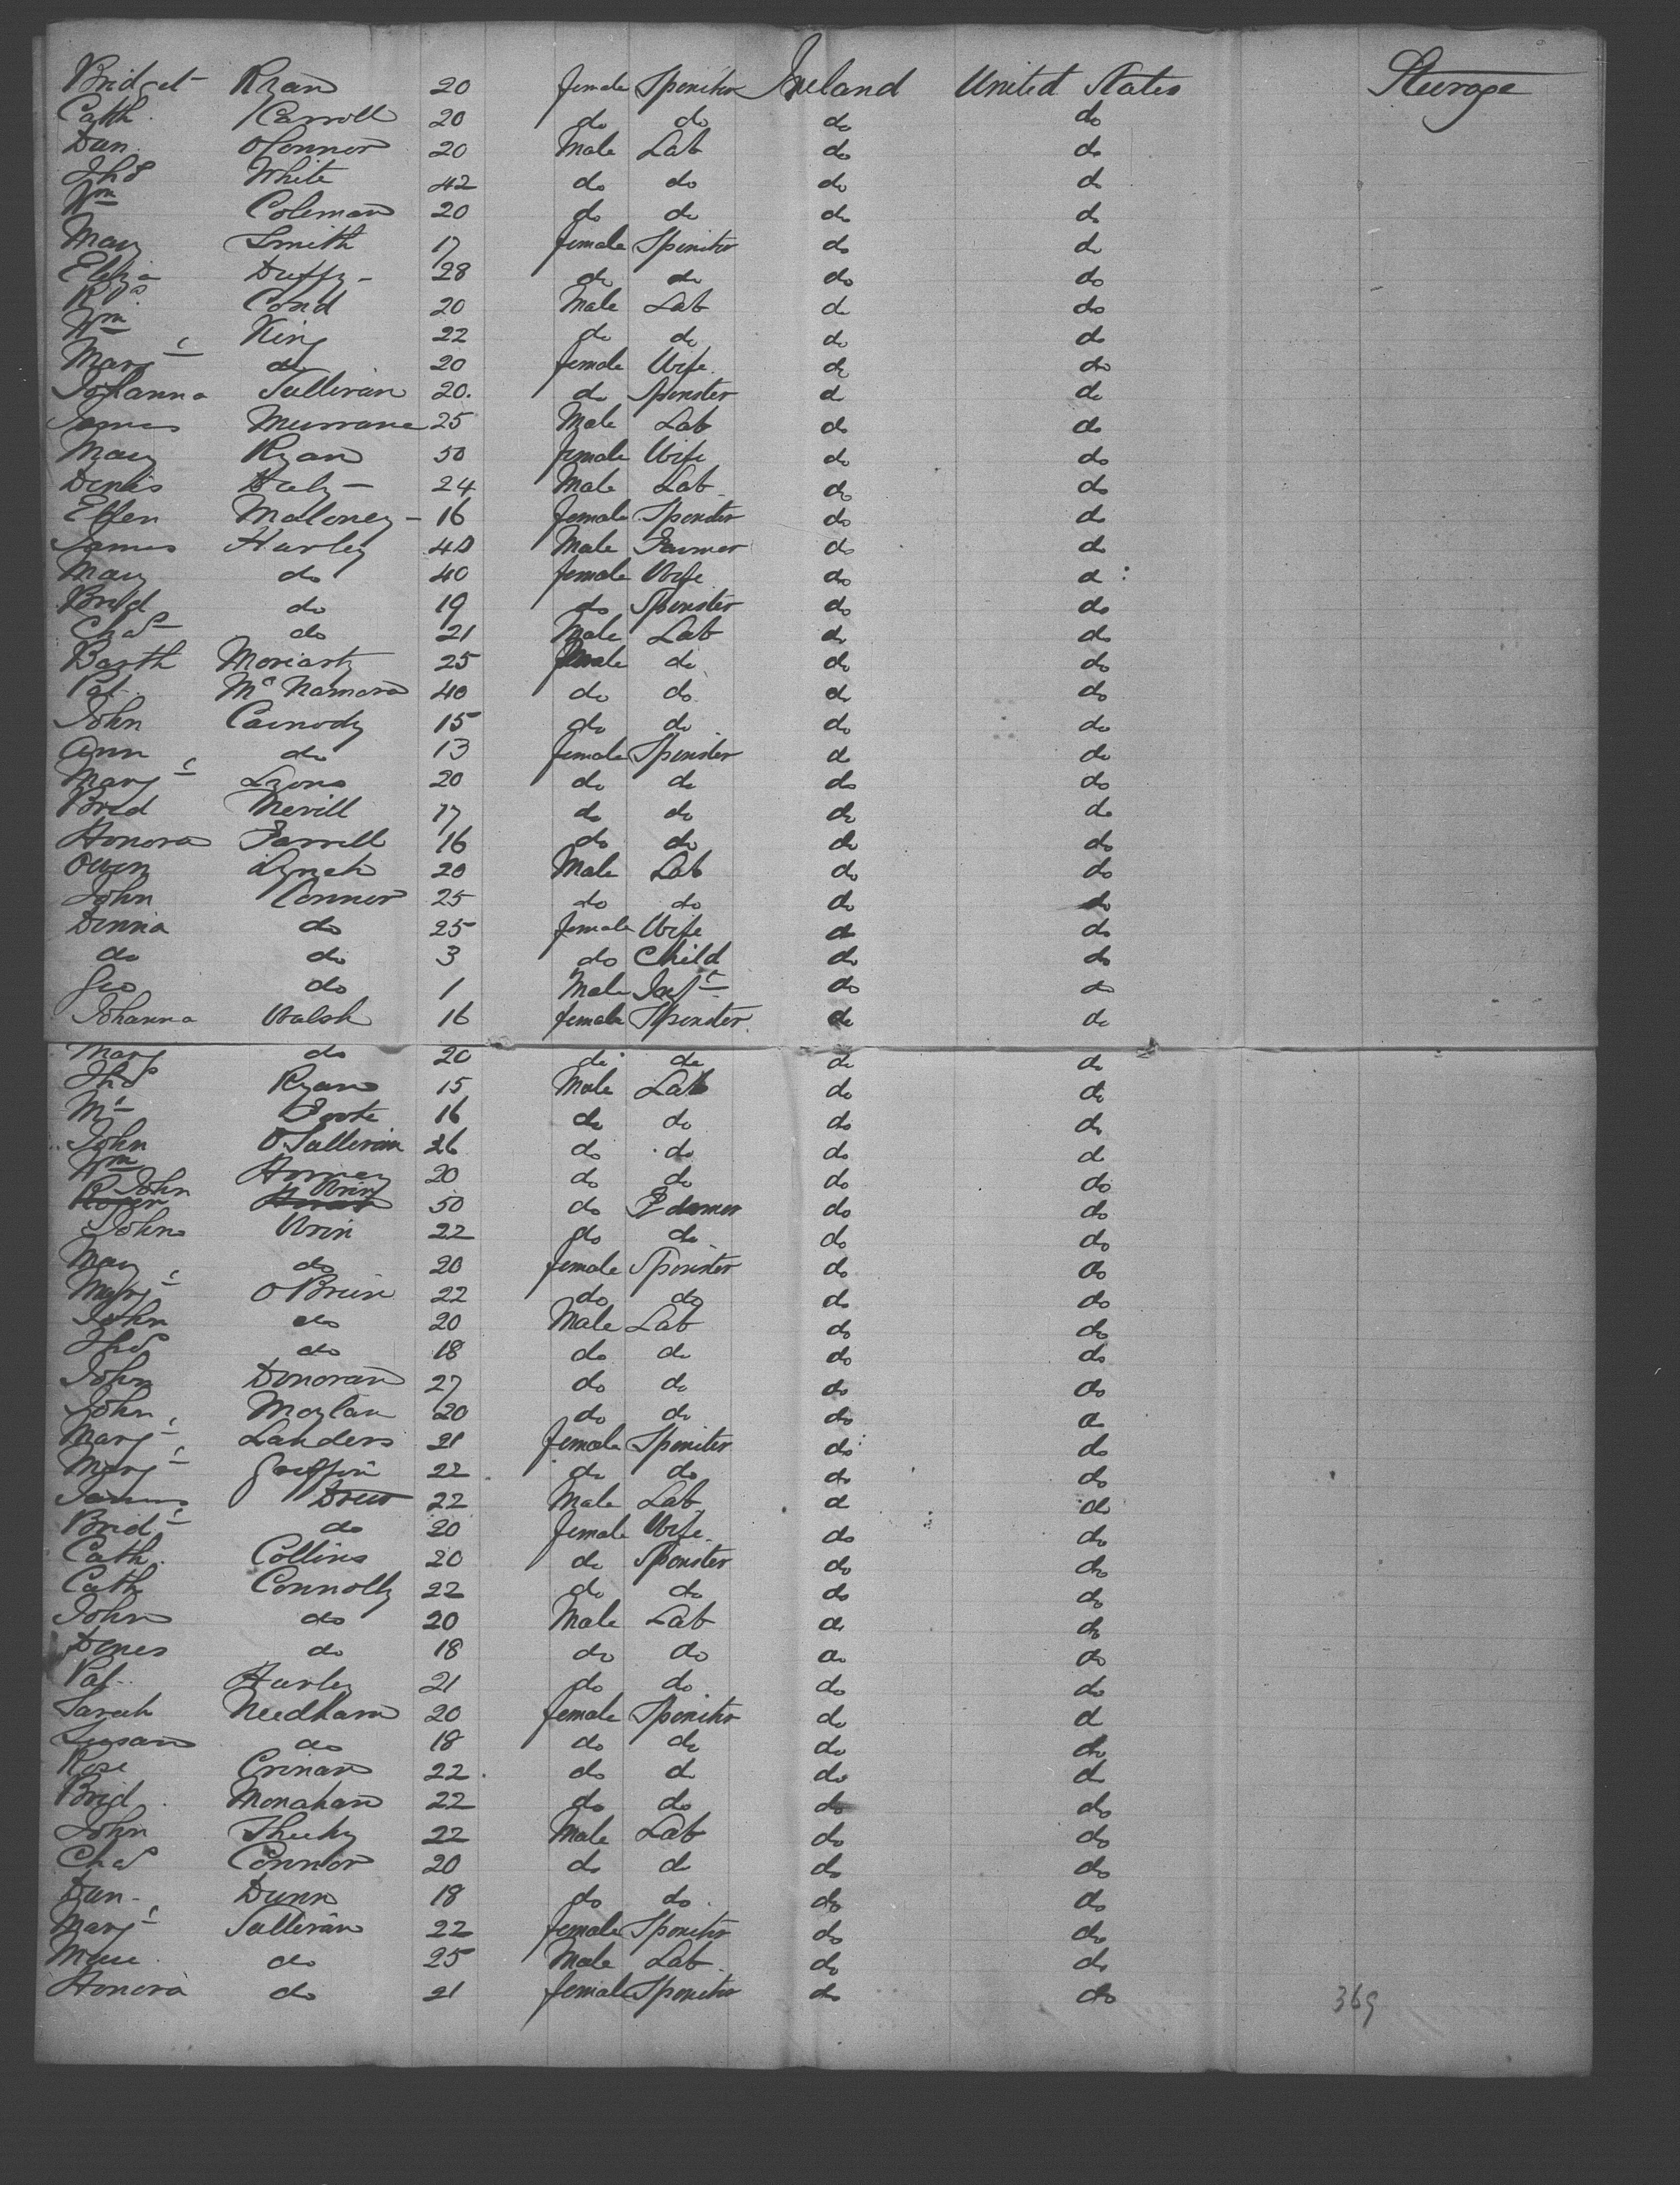 Bridget Ryan 20 female Spinster Ireland United States Steerage
Cath. Carroll 20 do do do do
Dan. OConnor 20 Male Lab do do
Thos White 42 do do do do
Wm Coleman 20 do do do do
Mary Smith 17 female Spinster do do
Eliza Duffy 28 do do do do
Cond 20 Male Lab do do
Wm King 22 do do do do
Margt do 20 female Wife do do
Johanna Sullivan 20 do Spinster do do
James Murrane 25 Male Lab do do
Mary Ryan 50 female Wife do do
Denis Haly 24 Male Lab do do
Ellen Maloney 16 female Spinster do do
James Hurley 40 Male Farmer do do
Mary do 40 female Wife do do
Brid do 19 do Spinster do do
Chas do 21 Male Lab do do
Barth Moriarty 25 Male do do do
Pat. McNamara 40 do do do do
John Carmody 15 do do do do
Ann do 13 female Spinster do do
Margt Lyons 20 do do do do
Brid Nevill 17 do do do do
Honora Farrell 16 do do do do
Owen Lynch 20 Male Lab do do
John Connor 25 do do do do
do 25 female Wife do do
do do 3 do Child do do
Geo do 1 Male Inft do do
Johanna Walsh 16 female Spinster do do
Mary do 20 do do do do
Thos Ryan 15 Male Lab do do
16 do do do do
John O'Sullivan 26 do do do do
Wm 20 do do do do
John 50 do Farmer do do
John 22 do do do do
Mary do 20 female Spinster do do
Margt OBrien 22 do do do do
John do 20 Male Lab do do
Thos do 18 do do do do
John Donovan 27 do do do do
John Moylan 20 do do do do
Margt Landers 21 female Spinster do do
Margt Griffin 22 do do do do
James Drew 22 Male Lab do do
Bridt do 20 female Wife do do
Cath. Collins 20 do Spinster do do
Cath Connolly 22 do do do do
John do 20 Male Lab do do
Denis do 18 do do do do
Pat. Hurley 21 do do do do
Sarah Needham 20 female Spinster do do
Susan do 18 do do do do
Rose Crinan 22 do do do do
Brid. Monahan 22 do do do do
John Sheehy 22 Male Lab do do
Chas Connor 20 do do do do
Dan. Dunn 18 do do do do
Margt Sullivan 22 female Spinster do do
do 25 Male Lab do do
Honora do 21 female Spinster do do 369